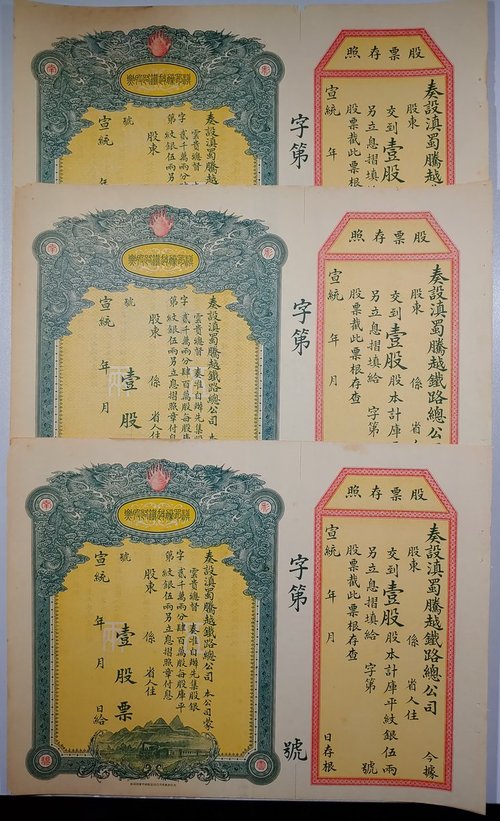 股票存照
奏設滇蜀騰越
股東
交到壹股
另立息摺填
股票截此票根
宣統 年
字第
奏設滇蜀騰越
雲貴總督
字貳千萬兩分
第紋銀伍兩另
股東
號
宣統 年
股票存照
奏設滇蜀騰越鐵路總公司
股東 係 省人
交到壹股股本計庫
另立息摺填給 字第
股票截此票根存查
宣統 年 月
字第
奏設滇蜀騰越鐵路總公司
雲貴總督 奏准自辦先集股
字貳千萬兩分肆百萬股每股
第紋銀伍兩另立息摺照章付息
股東 係 省人住
號 壹股
宣統 年 月
股票存照
奏設滇蜀騰越鐵路總公司 今據
股東 係 省人住
交到壹股股本計庫平紋銀伍兩
另立息摺填給 字第 號
股票截此票根存查
宣統 年 月 日存根
字第 號
奏設滇蜀騰越鐵路總公司 本公司蒙
雲貴總督 奏准自辦先集股銀
字貳千萬兩分肆百萬股每股庫平
第紋銀伍兩另立息摺照章付息
股東 係 省人住
號 壹股票
宣統 年 月 日給